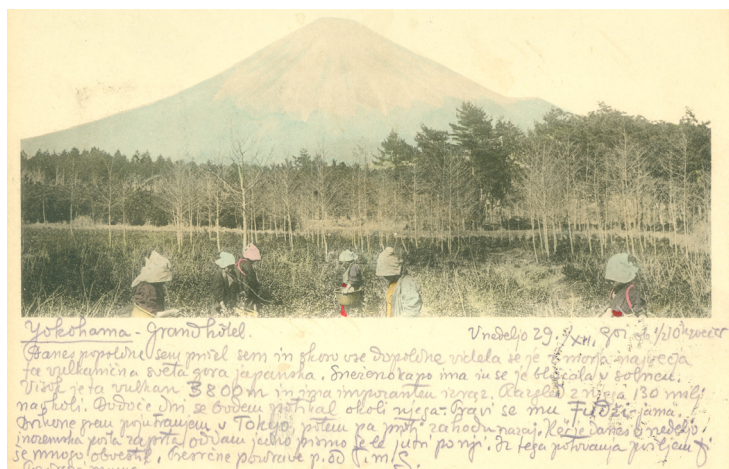 Yokohama - Grand hôtel. V nedeljo 29./XII. 901 ob 1/2 10h zvečer
Danes popoldne sem prišel sem in skoro vse dopoldne videla se je z morja največja
ta vulkanična sveta gora japanska. Sneženo kapo ima in se je bliščala v solncu.
Visok je ta vulkan 3800 m in ima imponanten izraz. Razgled z njega 130 milj
naokoli. Bodoče dni se bodem potikal okoli njega. Pravi se mu Fudži-jama.
grem pojutranjem v Tokyo, potem pa proti zahodu nazaj. Ker je danes nedeljo
inozemska pošta zaprta, oddam jedno pismo še le jutri po nji. Iz tega potovanja pošljem Ti
še mnogo obvestil. Presrčne pozdrave